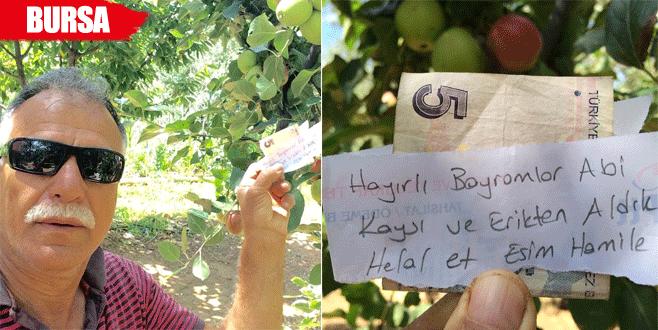 BURSA
5
TÜRKİYE
Hayırlı Bayramlar Abi
TAHSİLAT / ÖDEME B
Kaysı ve Erikten Aldık
Helal et Eşim Hamile